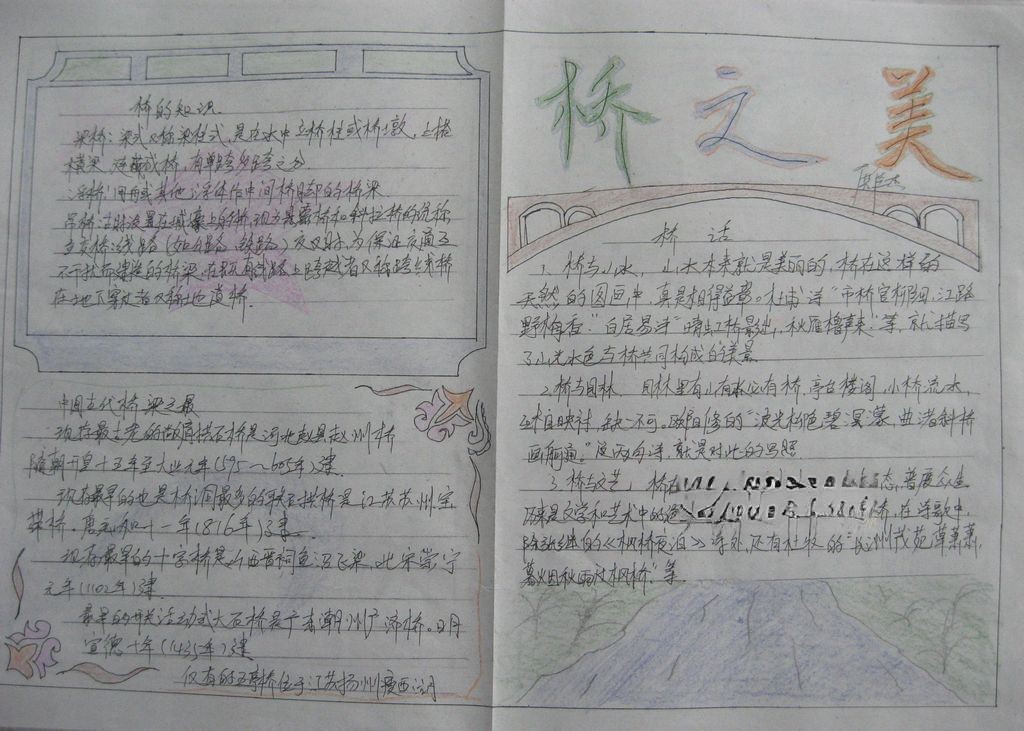 桥的知识
梁桥：梁式又称梁柱式，是在水中立桥柱或桥墩，上搭
横梁，连而成桥，有单跨多跨之分
浮桥：用舟或其他浮体作中间桥脚的桥梁
吊桥：古时设置在城壕上的桥，现为悬索桥和斜拉桥的统称
立交桥：线路（如公路、铁路）交叉时，为保证交通互
不干扰而建造的桥梁，在既有线路上跨越者又称跨线桥
在地下穿过者又称地道桥.
中国古代桥梁之最
现存最古老的敞肩拱石桥是河北赵县赵州桥
隋朝开皇十五年至大业元年(595～605年)建.
现存最早的也是桥洞最多的联石拱桥是江苏苏州宝
带桥。唐元和十一年(816年)建.
现存最早的十字桥是山西晋祠鱼沼飞梁，北宋崇宁
元年(1102年)建.
最早的开关活动式大石桥是广东潮州广济桥。明
宣德十年(1435年)建
仅有的五亭桥位于江苏扬州瘦西湖
桥之美
桥话
1、桥与山水，山水本来就是美丽的，桥在这样的
天然的图画中，真是相得益彰。杜甫诗“市桥官柳细，江路
野梅香.”白居易诗“晴虹桥影出，秋雁橹声来.”等，就描写
了山光水色与桥共同构成的美景
2、桥与园林，园林里有山有水必有桥，亭台楼阁，小桥流水，
互相映衬，缺一不可。欧阳修的“波光柳色碧溟濛，曲渚斜桥
画舸通”这两句诗，就是对此的写照.
3、桥与文艺，桥 态，普度众生
历来是文学和艺术中的 桥，在诗歌中，
除张继的《枫桥夜泊》诗外，还有杜牧的“长洲茂苑草萧萧，
暮烟秋雨过枫桥”等.